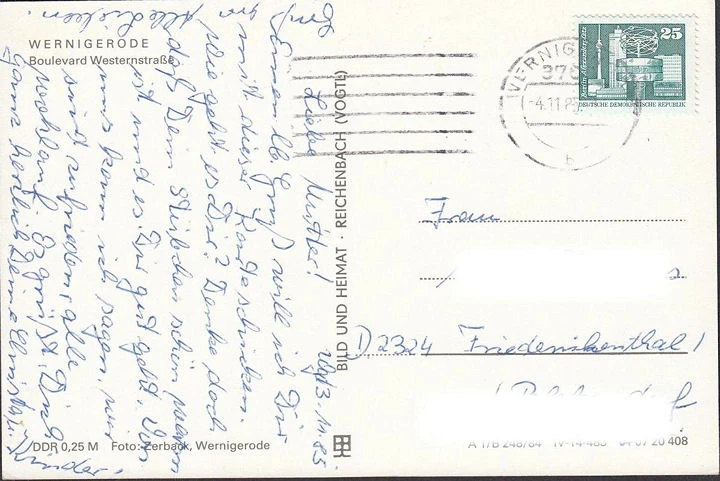 WERNIGERODE
Boulevard Westernstraße
Liebe Mutter!
3.11.85
Gruß will ich Dir
mit dieser Karte schicken.
Wie geht es Dir? Denke doch
daß Dein Stübchen schön warm
ist und es Dir gut geht. Von
uns kann ich sagen, wir
sind zufrieden, alle
wohlauf. Es grüßt Dich
ganz herzlich Deine
alle Lieben.
DDR 0,25 M Foto: Zerback, Wernigerode
BILD UND HEIMAT · REICHENBACH (VOGTL)
25
Berlin, Alexanderplatz
DEUTSCHE DEMOKRATISCHE REPUBLIK
WERNIG
370
-4.11.85
b
Frau
D 2324
A 1/B 248/84 IV-14-483 04 07 20 408